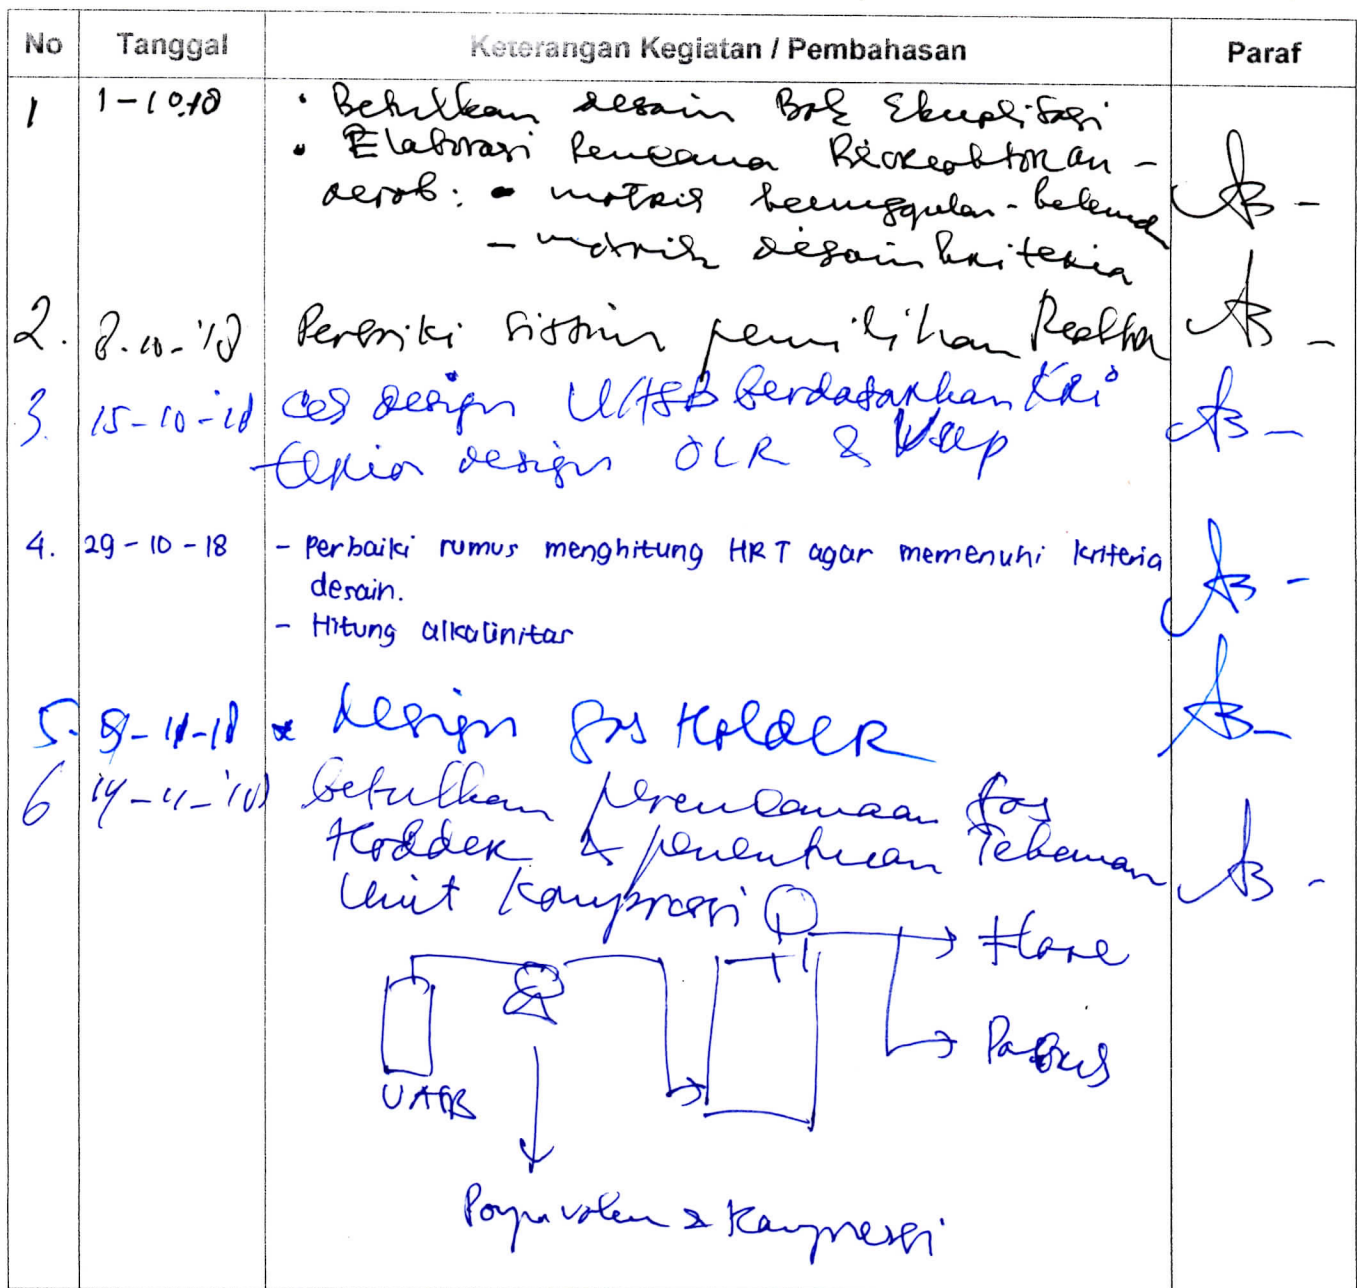 No Tanggal Keterangan Kegiatan / Pembahasan Paraf
1 1-10-18 • Betulkan desain Bak Ekualisasi
• Elaborasi Rencana Bioreaktor an-
aerob: - matrik keunggulan-kelemah
- matrik desain kriteria
2. 8-10-'18 Perbaiki sistim pemilihan Reaktor
3. 15-10-'18 Cek design UASB berdasarkan Kri
teria design OLR & Vup
4. 29-10-18 - Perbaiki rumus menghitung HRT agar memenuhi kriteria
desain.
- Hitung alkalinitas
5. 9-11-18 * design gas Holder
6 14-11-'18 betulkan perencanaan gas
Holder & penentuan Tekanan
Unit Kompressi
Flare
UASB
Pompa vakum & Kompressi